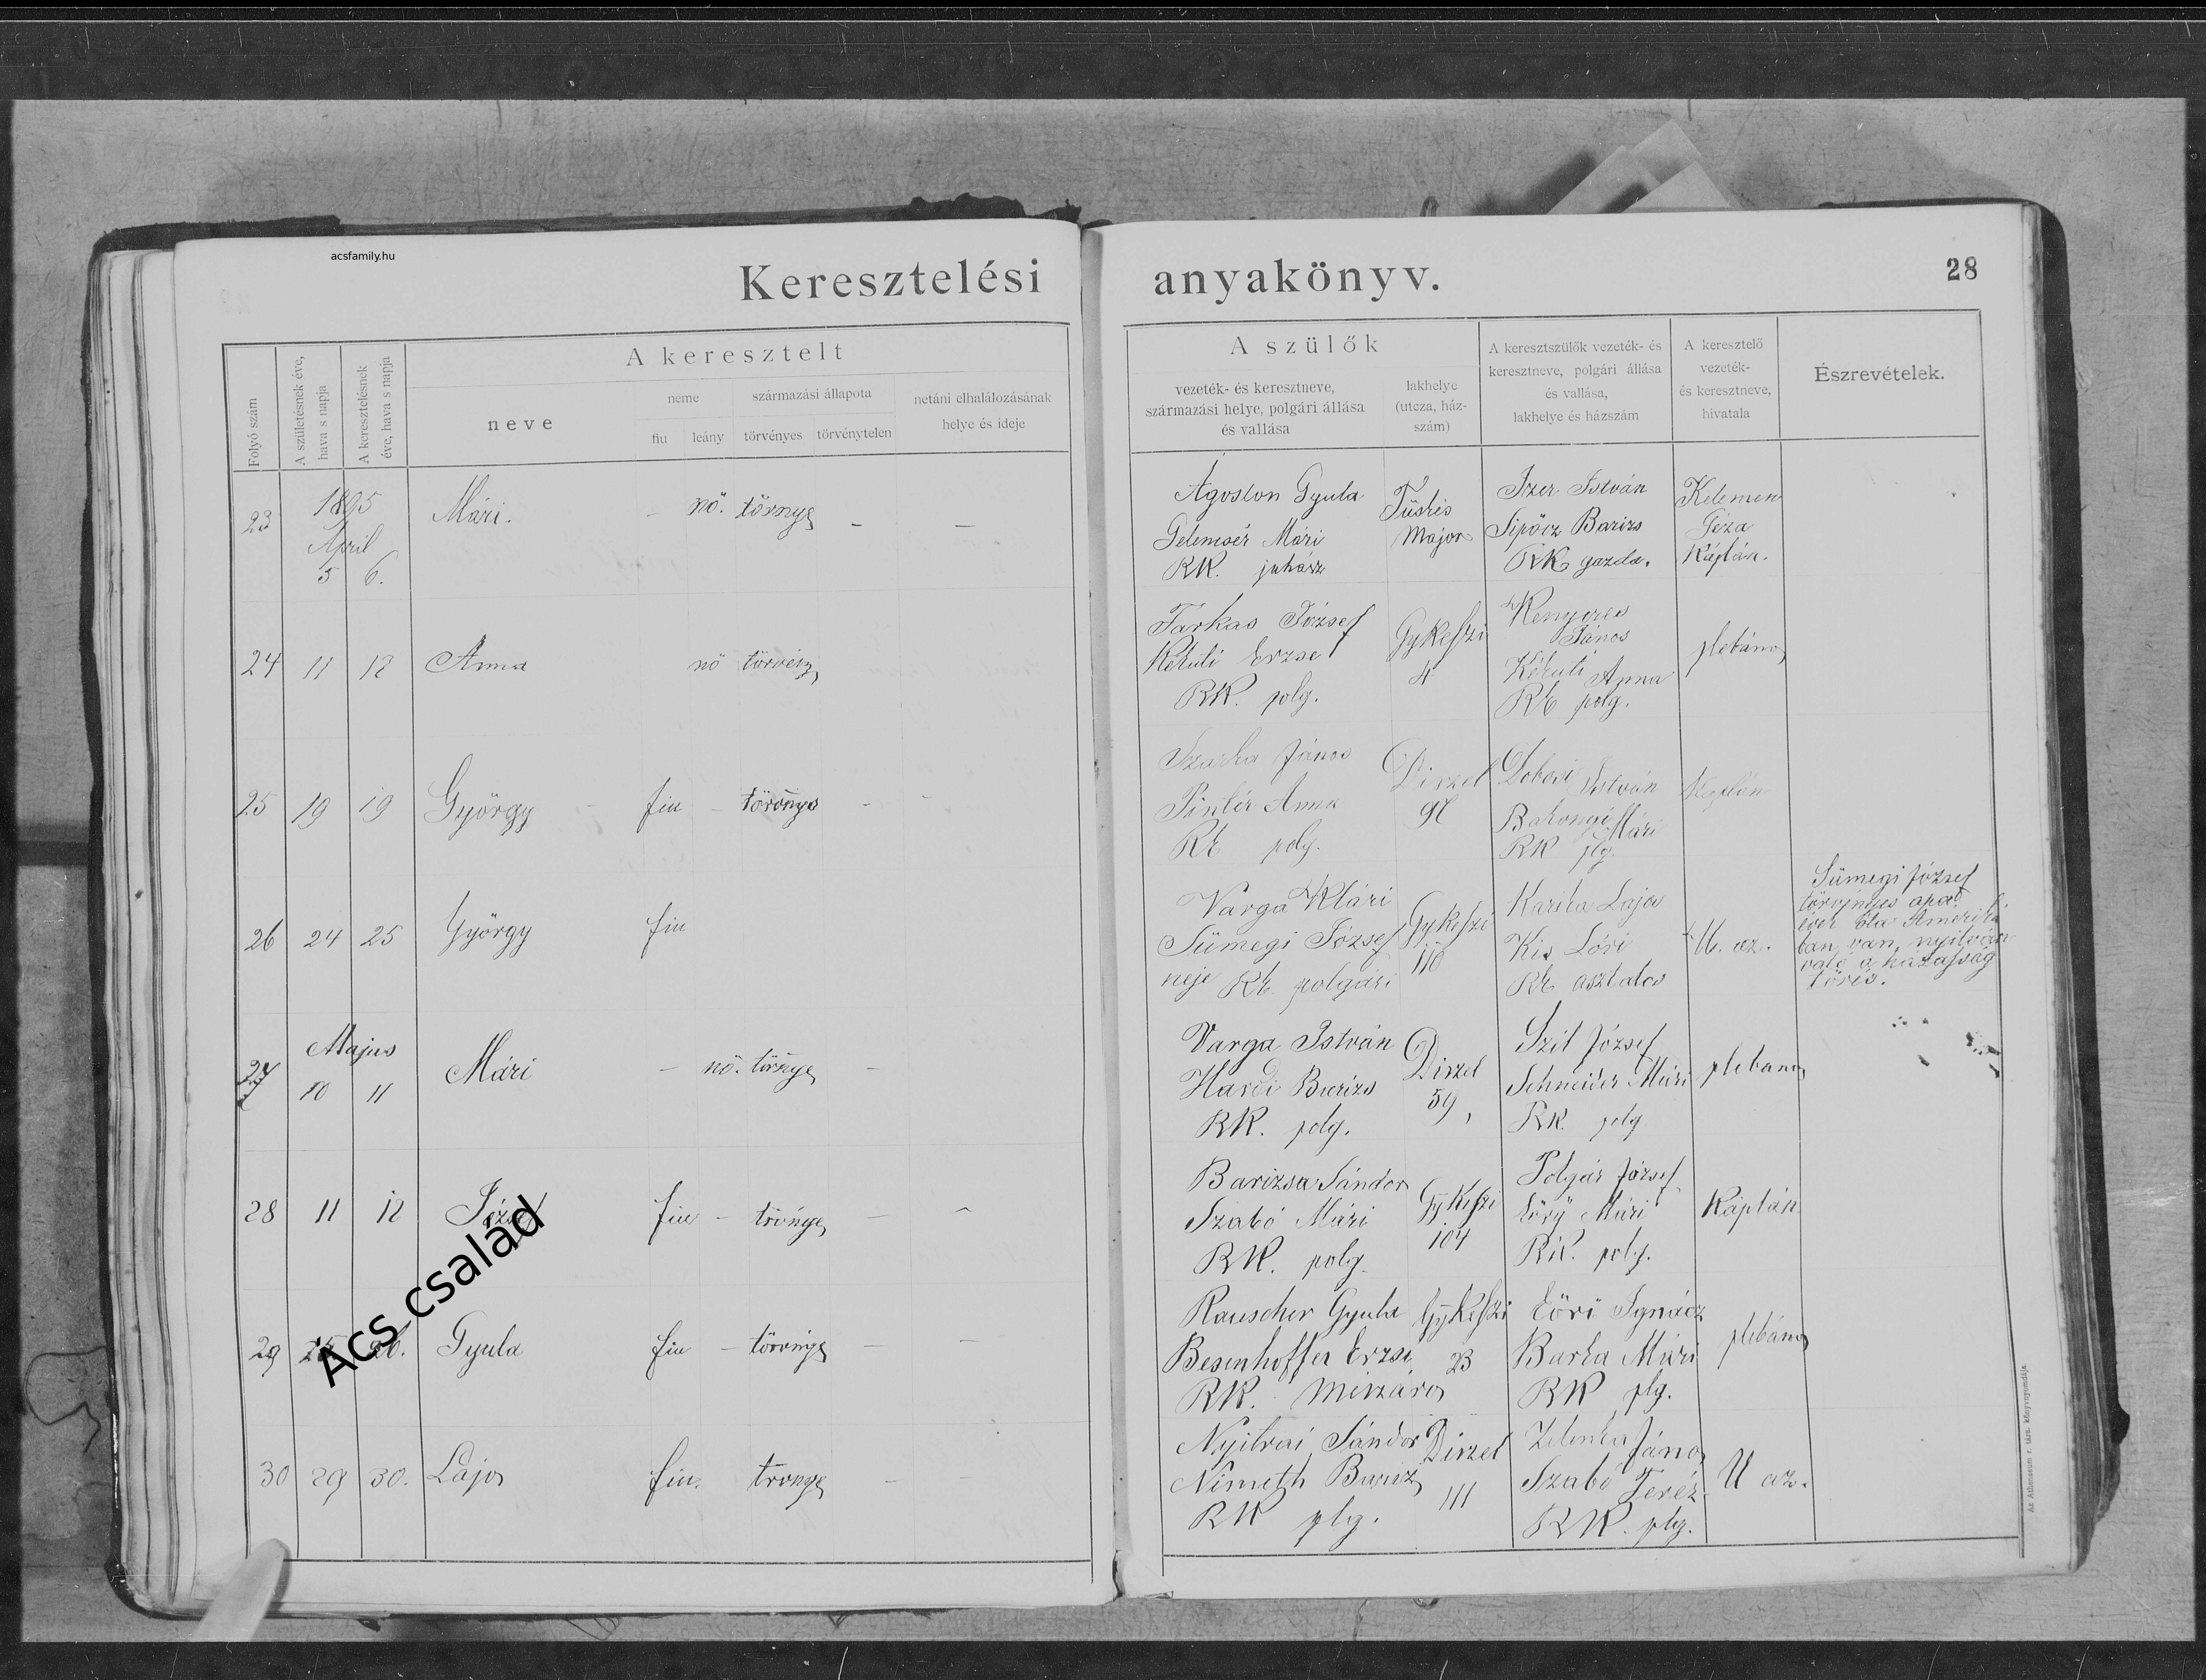 acsfamily.hu
Keresztelési anyakönyv.
28
Folyó szám
A születésnek éve, hava s napja
A keresztelésnek éve, hava s napja
A keresztelt
neve
neme
fiu
leány
származási állapota
törvényes
törvénytelen
netáni elhalálozásának
helye és ideje
A szülők
vezeték- és keresztneve,
származási helye, polgári állása
és vallása
lakhelye
(utcza, ház-
szám)
A keresztszülők vezeték- és
keresztneve, polgári állása
és vallása,
lakhelye és házszám
A keresztelő
vezeték-
és keresztneve,
hivatala
Észrevételek.
23
1895
April
5 6.
Mári.
nö.
Ágoston Gyula
Gelencsér Mári
RK. juhász
Major
István
Sipőcz Barizs
RK gazda.
Kelemen
Géza
Káplán.
24 11 12 Anna
nö
Farkas József
Kéhuli Erzse
RK. polg.
Gykeszi
4
Kenyeres
János
Kéhuli Anna
Rk polg.
plebános
25 19 19 György fiu
Szarka János
Pintér Anna
Rk polg.
Diszel
István
Bakonyi Mári
RK plg.
Káplán
26 24 25 György fiu
Varga Klári
Sümegi József
neje Rk polgári
Gykeszi
110
Lajos
Kis Lóri
Rk asztalos
U. az.
Sümegi József
törvényes apa
van, nyilván
való a házasság
törés.
27
Majus
10 11
Mári
nö.
Varga István
Hardi Barizs
RK. polg.
Diszel
59
Szit József
Schneider Mári
RK polg
plebanos
28 11 12 József fiu
Barizsa Sándor
Szabó Mári
RK. polg.
Gykeszi
104
Polgár József
Mári
RK. polg.
Káplán
29 26. Gyula fiu
Rauscher Gyula
Besenhoffer Erzse
RK. mészáros
Gykeszi
23
Eöri Ignácz
Barka Mári
RK plg.
plébános
30 29 30. Lajos fiu.
Nyitrai Sándor
Németh
RK plg.
Diszel
111
Zelenka János
Szabó Teréz
RK. plg.
U az.
Acs család
Az Athenaeum r. társ. könyvnyomdája.